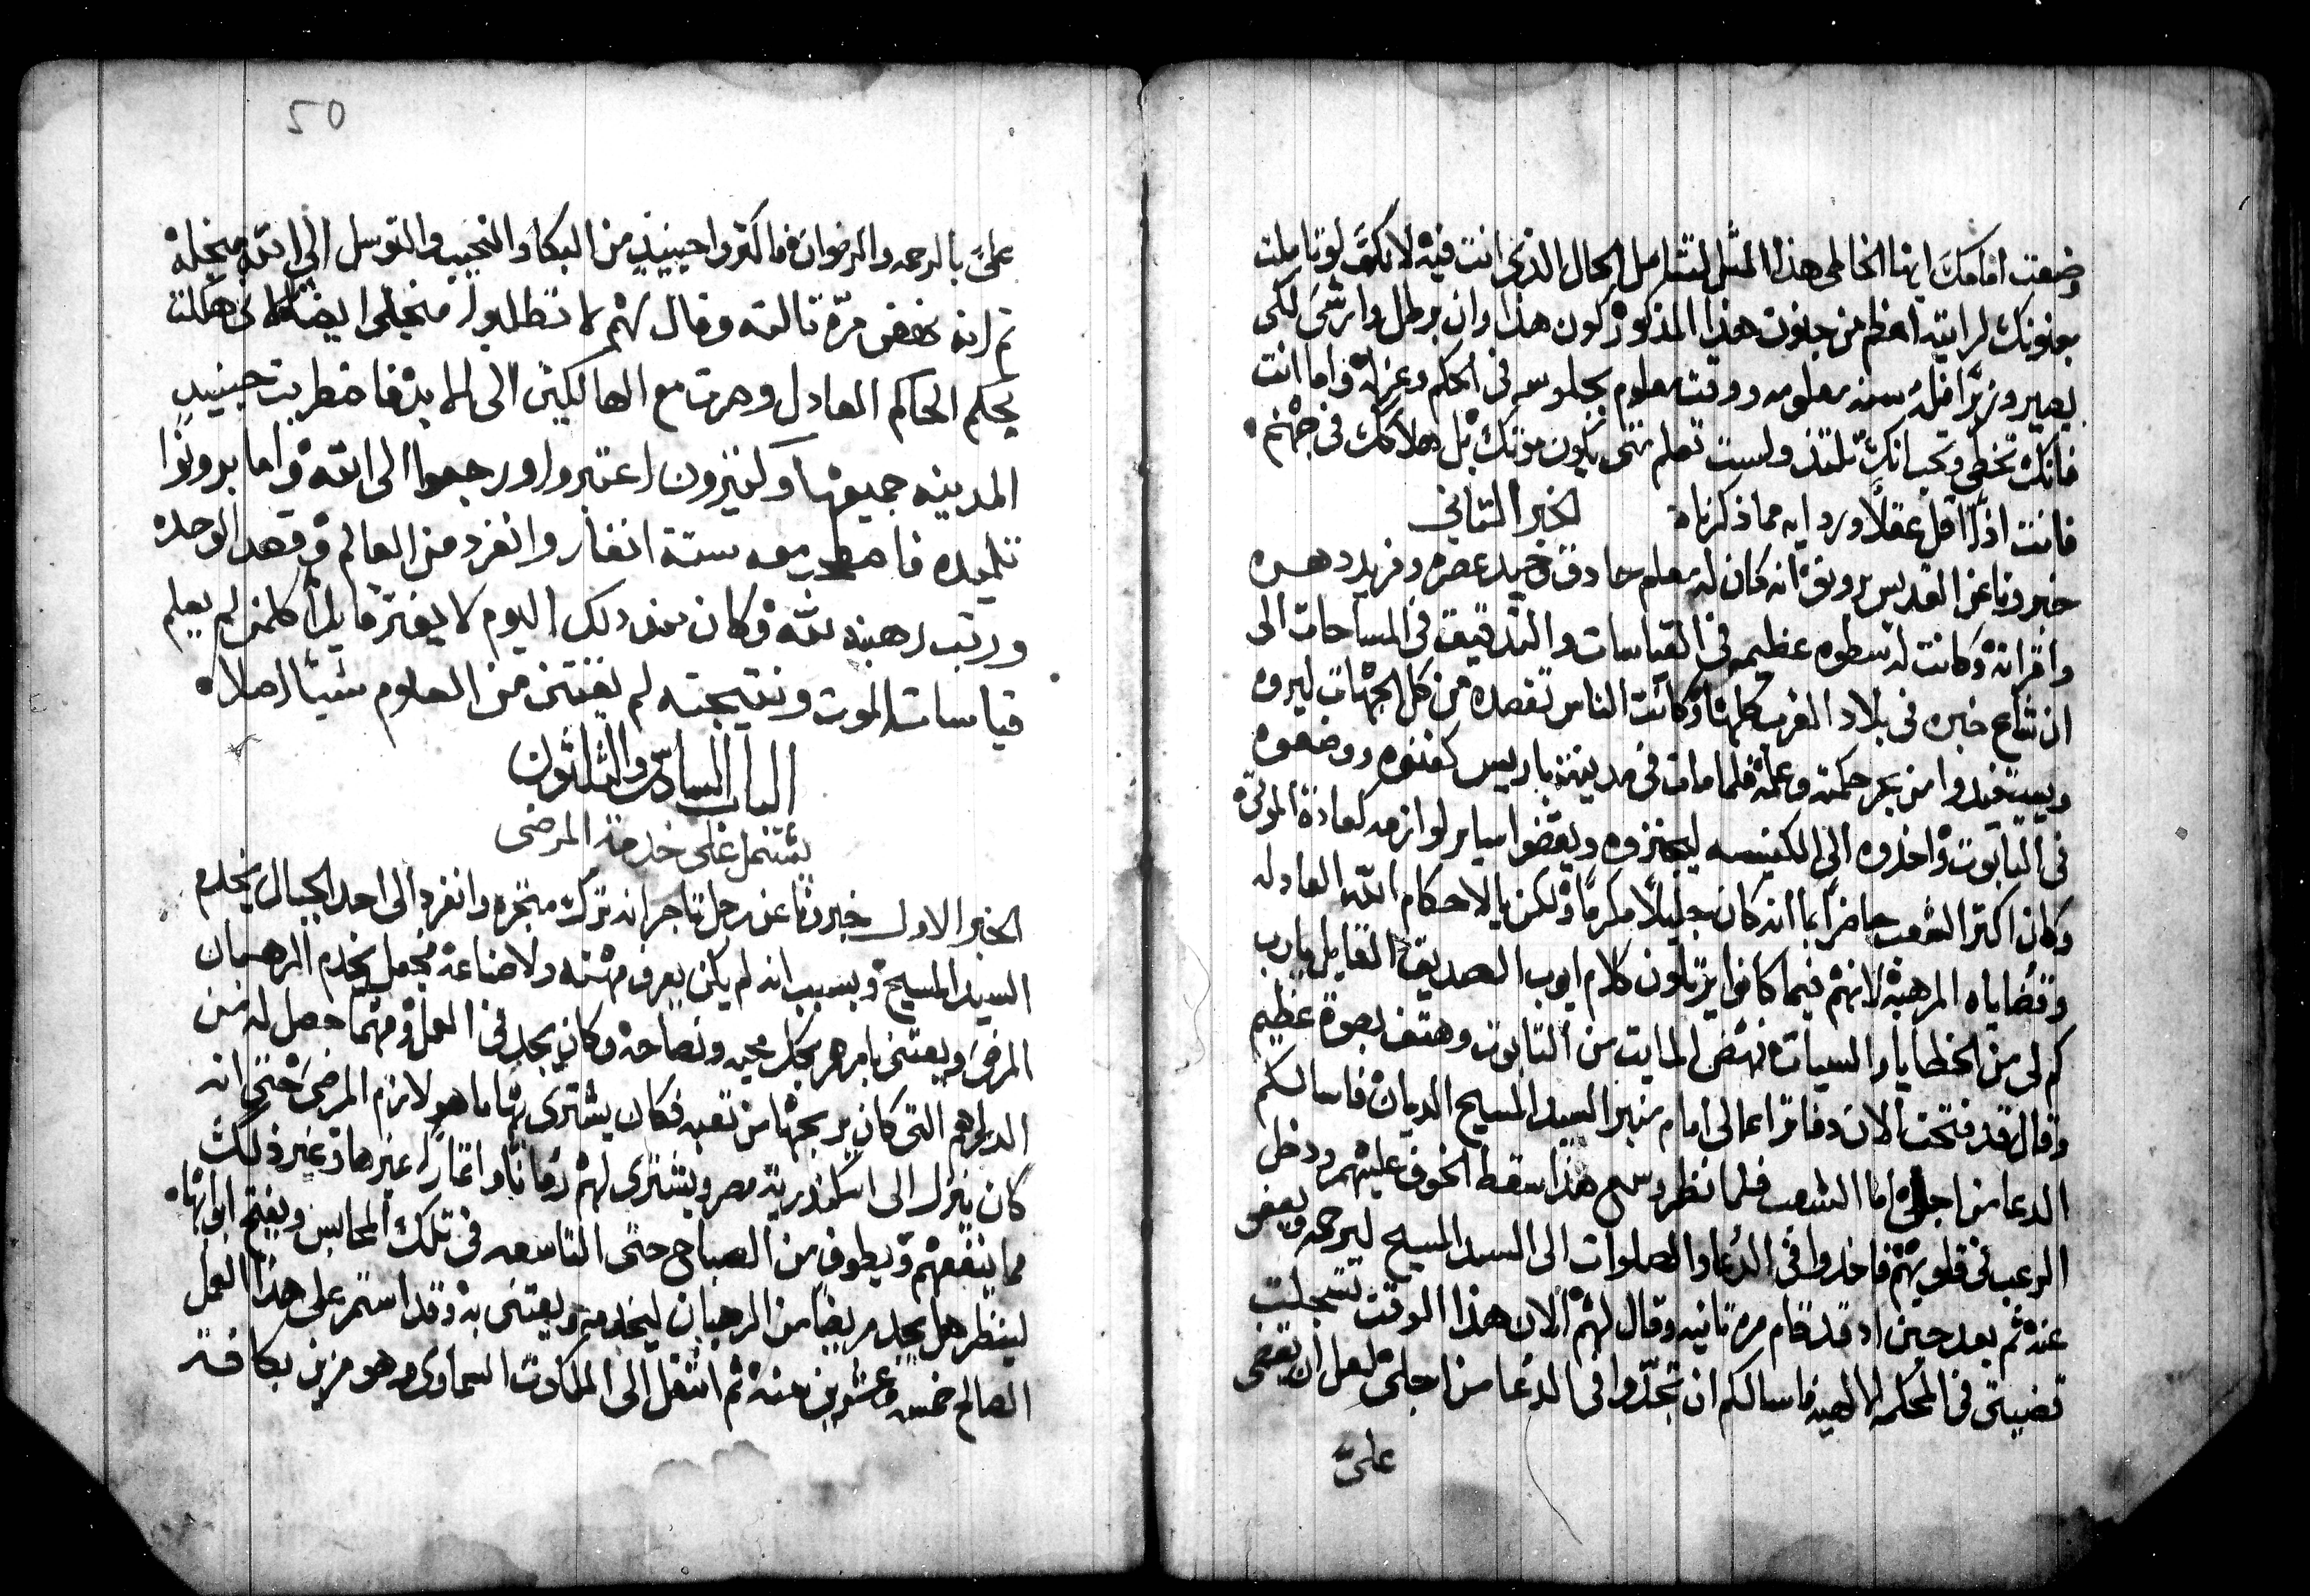 وضعت امامك ايها الخاطي هذا المثل لتتامل الحال الذي انت فيه لانك لو تاملت
بجنونك لرايته اعظم من جنون هذا المذكور كون هذا وان برطل وارشى لكى
يصير وزيرًا فله سنه معلومه ووقت معلوم بجلوسه في الحكم وعزله واما انت
فانك تخطى وتحب انك تلتذ ولست تعلم متى يكون موتك بل هلاكك في جهنم
فانت اذًا اقل عقلًا ودرايه مما ذكرناه الخبر الثاني
خبرونا عن القديس برونو انه كان له معلم حادق وحيد عصره وفريد دهره
واقرانه وكانت له سطوه عظيمه في القياسات والتدقيق في المساحات الى
ان شاع خبره في بلاد الغرب كلها وكانت الناس تقصده من كل الجهات ليروه
ويستفيدوا من بحر حكمته وعلمه فلما مات في مدينة باريس كفنوه ووضعوه
في التابوت واخذوه الى الكنيسه ليجنزوه ويقضوا ساير لوازمه كعادة الموتى
وكان اكتر الشعب حاضرًا بما انه كان جليلًا مكرمًا ولكن يالاحكام الله العادله
وقضاياه المرهبه لانهم فيما كانوا يرتلون كلام ايوب الصديق القايل يارب
كم لى من الخطايا والسيات نهض المايت من التابوت وهتف بصوت عظيم
وقال قد فتحت الان دفاتر اعمالى امام منبر السيد المسيح الديان فاسالكم
الدعا من اجلى اما الشعب فلما نظر وسمع هذا سقط الخوف عليهم ودخل
الرعب في قلوبهم فاخذوا في الدعا والصلوات الى السيد المسيح ليرحمه ويعفى
عنه ثم بعد حين اد قد قام مره تانيه وقال لهم الان هذا الوقت تسجلت
قضيتى في المحكمه الالهيه فاسالكم ان تجدّوا في الدعا من اجلى لعل ان يقضى
علىّ
50
علىّ بالرحمه والرضوان فاكتروا حينيذٍ من البكا والنحيب والتوسل الى الله من اجله
ثم انه نهض مرّه تالته وقال لهم لا تطلبوا من اجلى ايضًا لانى هلكت
بحكم الحاكم العادل وصرت مع الهالكين الى الابد فاضطربت حينيذٍ
المدينه جميعها وكثيرون اعتبروا ورجعوا الى الله واما برونوا
تلميذه فاصطحب معه ستة انفار وانفرد من العالم وقصد الوحده
ورتب رهبنه لله وكان من ذلك اليوم لا يفتر قايلًا كلمن لم يعلم
قياسات الموت ونتيجته لم يقتنى من العلوم شيًا اصلا
الباب السادس والثلثون
يشتمل على خدمة المرضى
الخبر الاول خبرونا عن رجل تاجر انه ترك متجره وانفرد الى احد الجبال يخدم
السيد المسيح وبسبب انه لم يكن يعرف مهنه ولا صناعة فجعل يخدم الرهبان
المرضى ويعتنى بامرهم بكل محبه ونصاحه وكان يجد في العمل ومهما حصل له من
الدراهم التى كان يربحها من تعبه فكان يشترى بها ما هو لازم المرضى حتى انه
كان ينزل الى اسكندرية مصر ويشترى لهم رمانًا واثمارًا غيرها وغير ذلك
مما ينفعهم ويطوف من الصباح حتى التاسعه في تلك المحابس ويفتح ابوابها
لينظر هل يجد مريضًا من الرهبان ليخدمه ويعتنى به وقد استمر على هذا العمل
الصالح خمسه وعشرين سنه ثم انتقل الى الملكوت السماوى وهو مزين بكافة